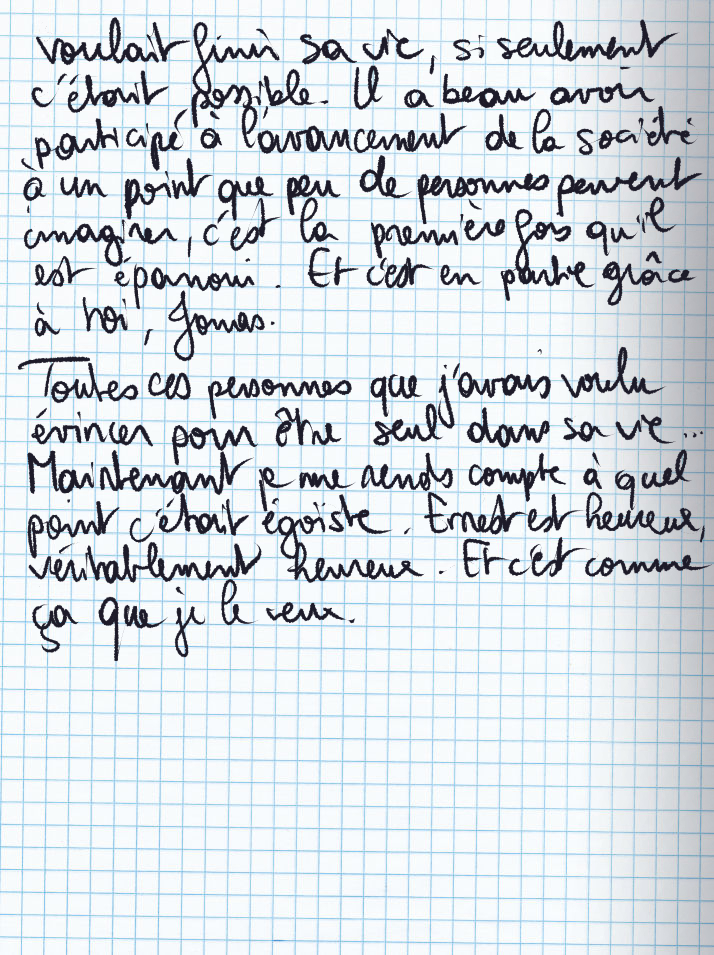 voulait finir sa vie, si seulement
c'était possible. Il a beau avoir
participé à l'avancement de la société
à un point que peu de personnes peuvent
imaginer, c'est la première fois qu'il
est épanoui. Et c'est en partie grâce
à toi, Jonas.
Toutes ces personnes que j'avais voulu
évincer pour être seul dans sa vie...
Maintenant je me rends compte à quel
point c'était égoïste. Ernest est heureux,
véritablement heureux. Et c'est comme
ça que je le veux.